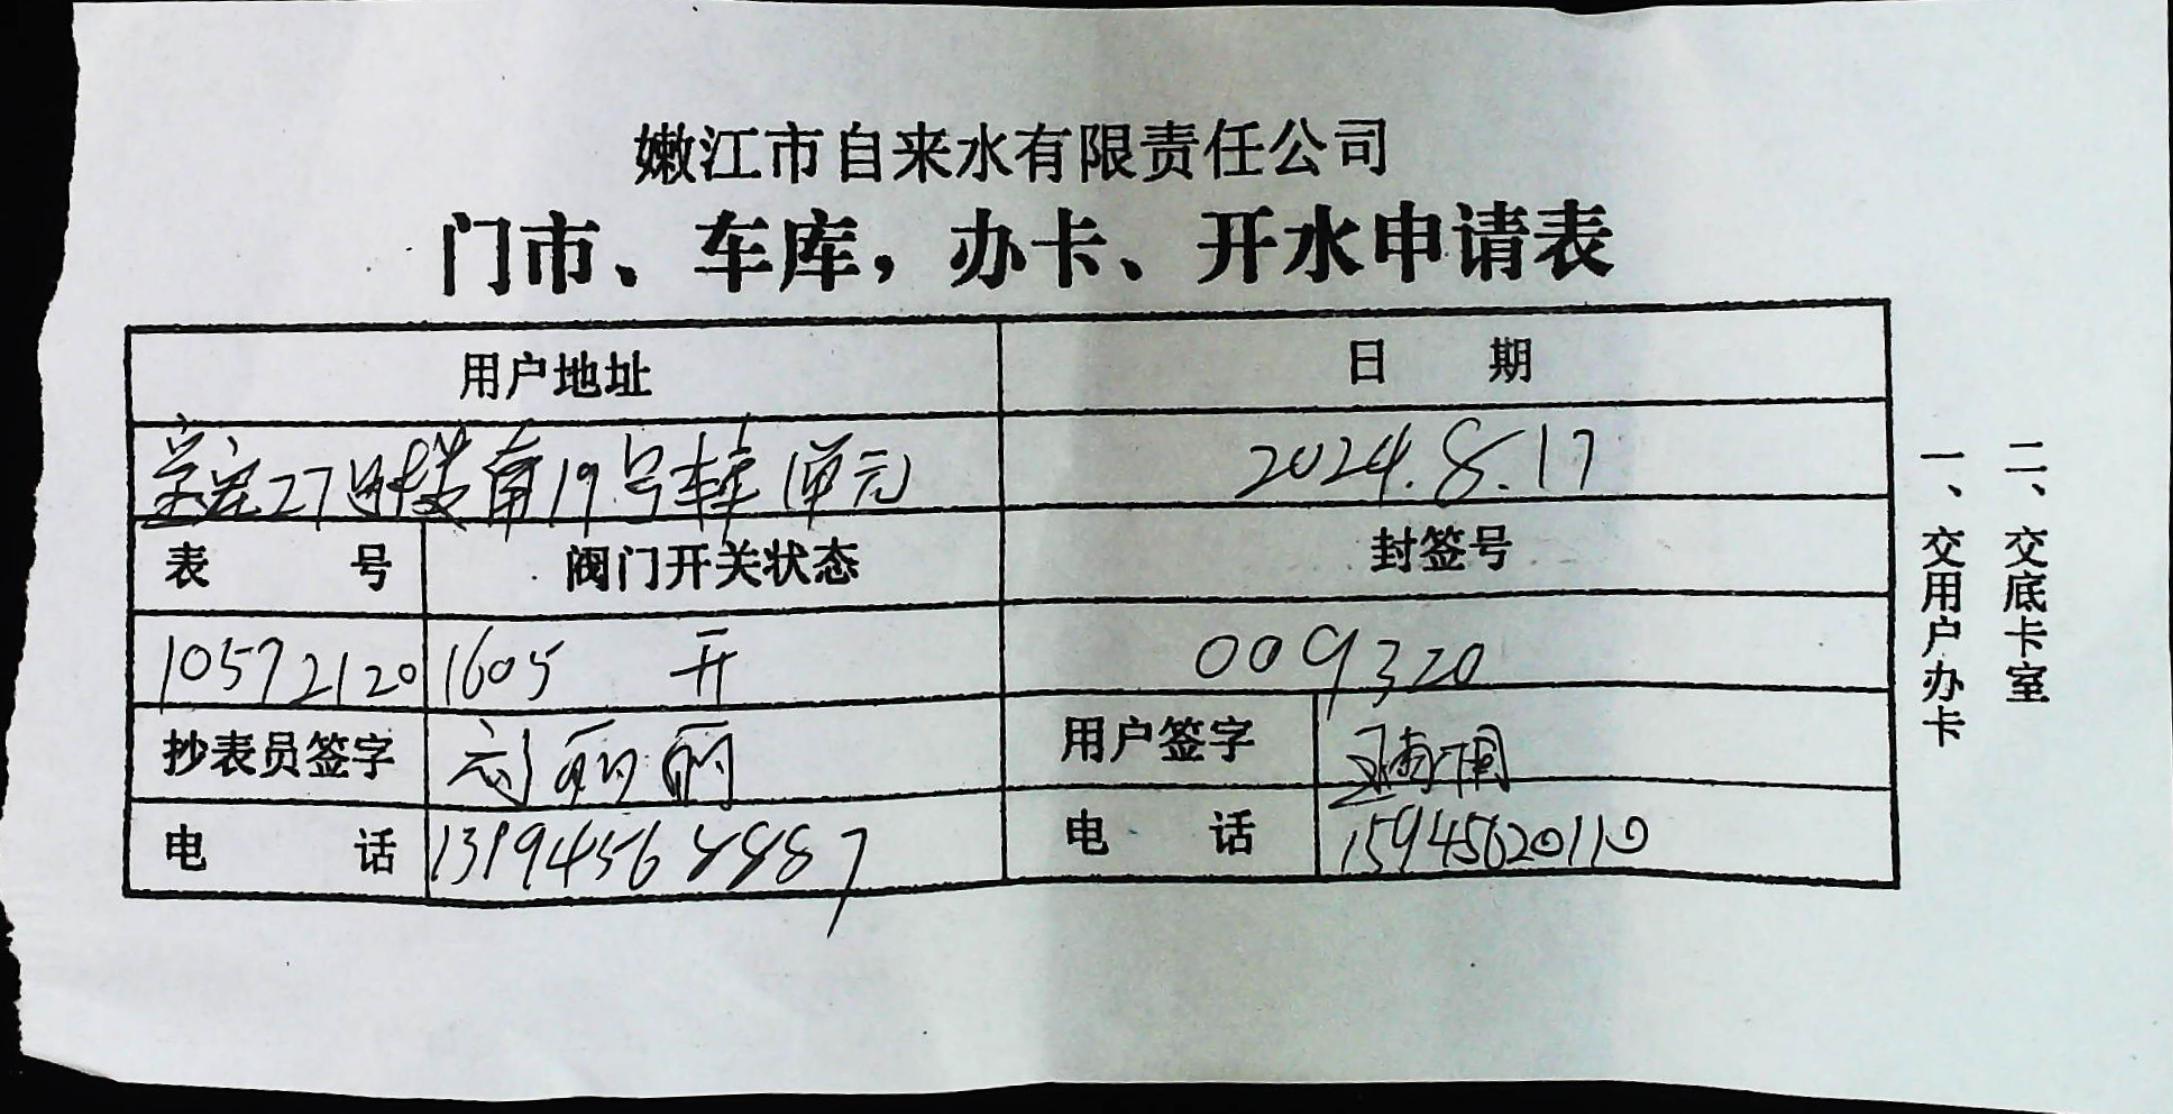 嫩江市自来水有限责任公司
门市、车库，办卡、开水申请表
用户地址 日 期
27号楼南19号车库1单元 2024.8.17
表 号 阀门开关状态 封签号
10572120 1605 开 009320
抄表员签字 刘丽丽 用户签字
电 话 13194568887 电 话 15945620110
一、交用户办卡
二、交底卡室